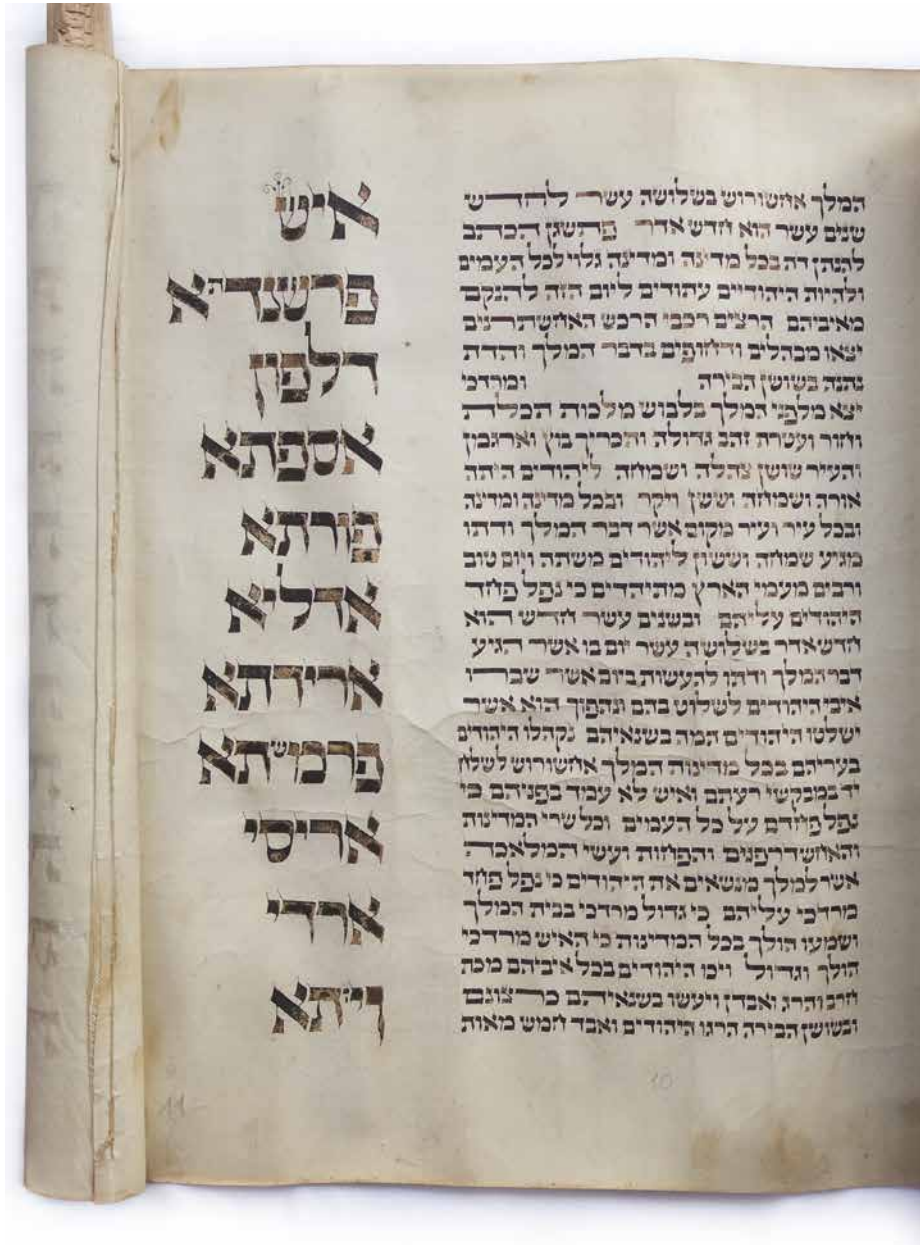 המלך אחשורוש בשלושה עשר לחדש
שנים עשר הוא חדש אדר פתשגן הכתב
להנתן דת בכל מדינה ומדינה גלוי לכל העמים
ולהיות היהודיים עתודים ליום הזה להנקם
מאיביהם הרצים רכבי הרכש האחשתרנים
יצאו מבהלים ודחופים בדבר המלך והדת
נתנה בשושן הבירה ומרדכי
יצא מלפני המלך בלבוש מלכות תכלת
וחור ועטרת זהב גדולה ותכריך בוץ וארגמן
והעיר שושן צהלה ושמחה ליהודים היתה
אורה ושמחה וששן ויקר ובכל מדינה ומדינה
ובכל עיר ועיר מקום אשר דבר המלך ודתו
מגיע שמחה וששון ליהודים משתה ויום טוב
ורבים מעמי הארץ מתיהדים כי נפל פחד
היהודים עליהם ובשנים עשר חדש הוא
חדש אדר בשלושה עשר יום בו אשר הגיע
דבר המלך ודתו להעשות ביום אשר שברו
איבי היהודים לשלוט בהם ונהפוך הוא אשר
ישלטו היהודים המה בשנאיהם נקהלו היהודים
בעריהם בכל מדינות המלך אחשורוש לשלח
יד במבקשי רעתם ואיש לא עמד בפניהם כי
נפל פחדם על כל העמים וכל שרי המדינות
והאחשדרפנים והפחות ועשי המלאכה
אשר למלך מנשאים את היהודים כי נפל פחד
מרדכי עליהם כי גדול מרדכי בבית המלך
ושמעו הולך בכל המדינות כי האיש מרדכי
הולך וגדול ויכו היהודים בכל איביהם מכת
חרב והרג ואבדן ויעשו בשנאיהם כרצונם
ובשושן הבירה הרגו היהודים ואבד חמש מאות
10
איש
פרשנדתא
דלפון
אספתא
פורתא
אדליא
ארידתא
פרמשתא
אריסי
ארדי
ויזתא
11